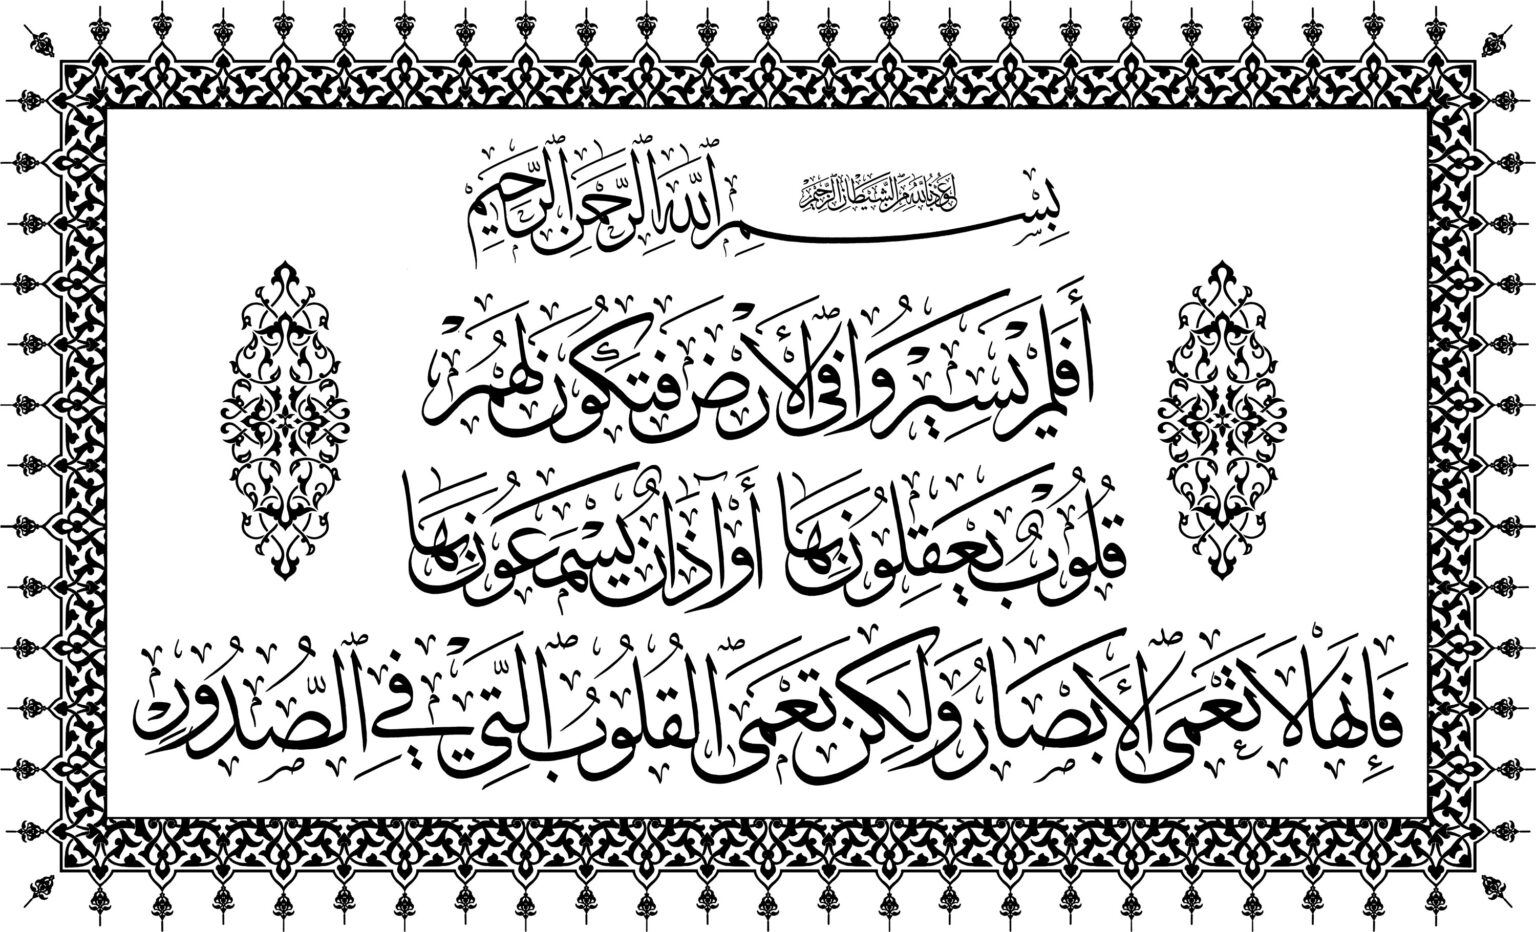 بِسْمِ اللَّهِ الرَّحْمَنِ الرَّحِيمِ
اعوذ بالله من الشيطان الرجيم
أَفَلَمْ يَسِيرُوا فِي الْأَرْضِ فَتَكُونَ لَهُمْ
قُلُوبٌ يَعْقِلُونَ بِهَا أَوْ آذَانٌ يَسْمَعُونَ بِهَا
فَإِنَّهَا لَا تَعْمَى الْأَبْصَارُ وَلَكِنْ تَعْمَى الْقُلُوبُ الَّتِي فِي الصُّدُورِ